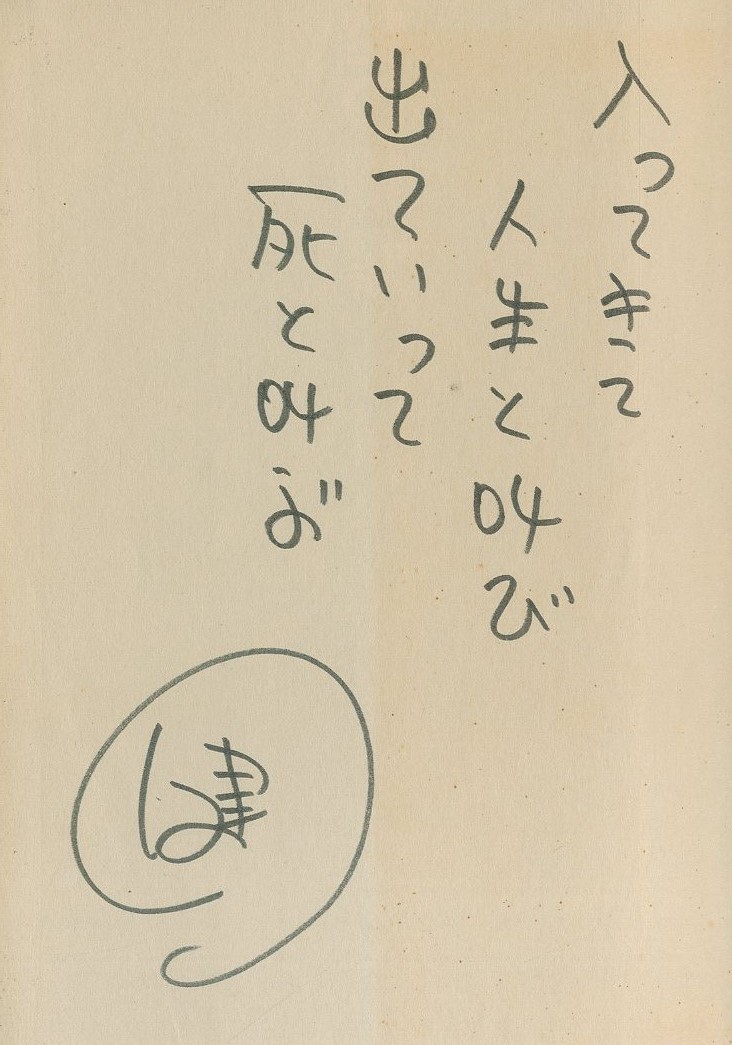 入ってきて
人生と叫び
出ていって
死と叫ぶ
健